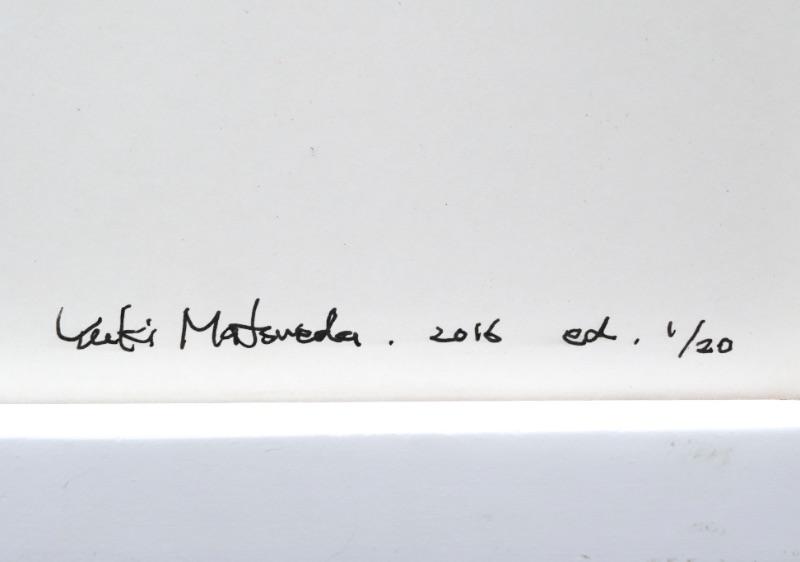 Yuki Matsueda . 2016 ed. 1/20